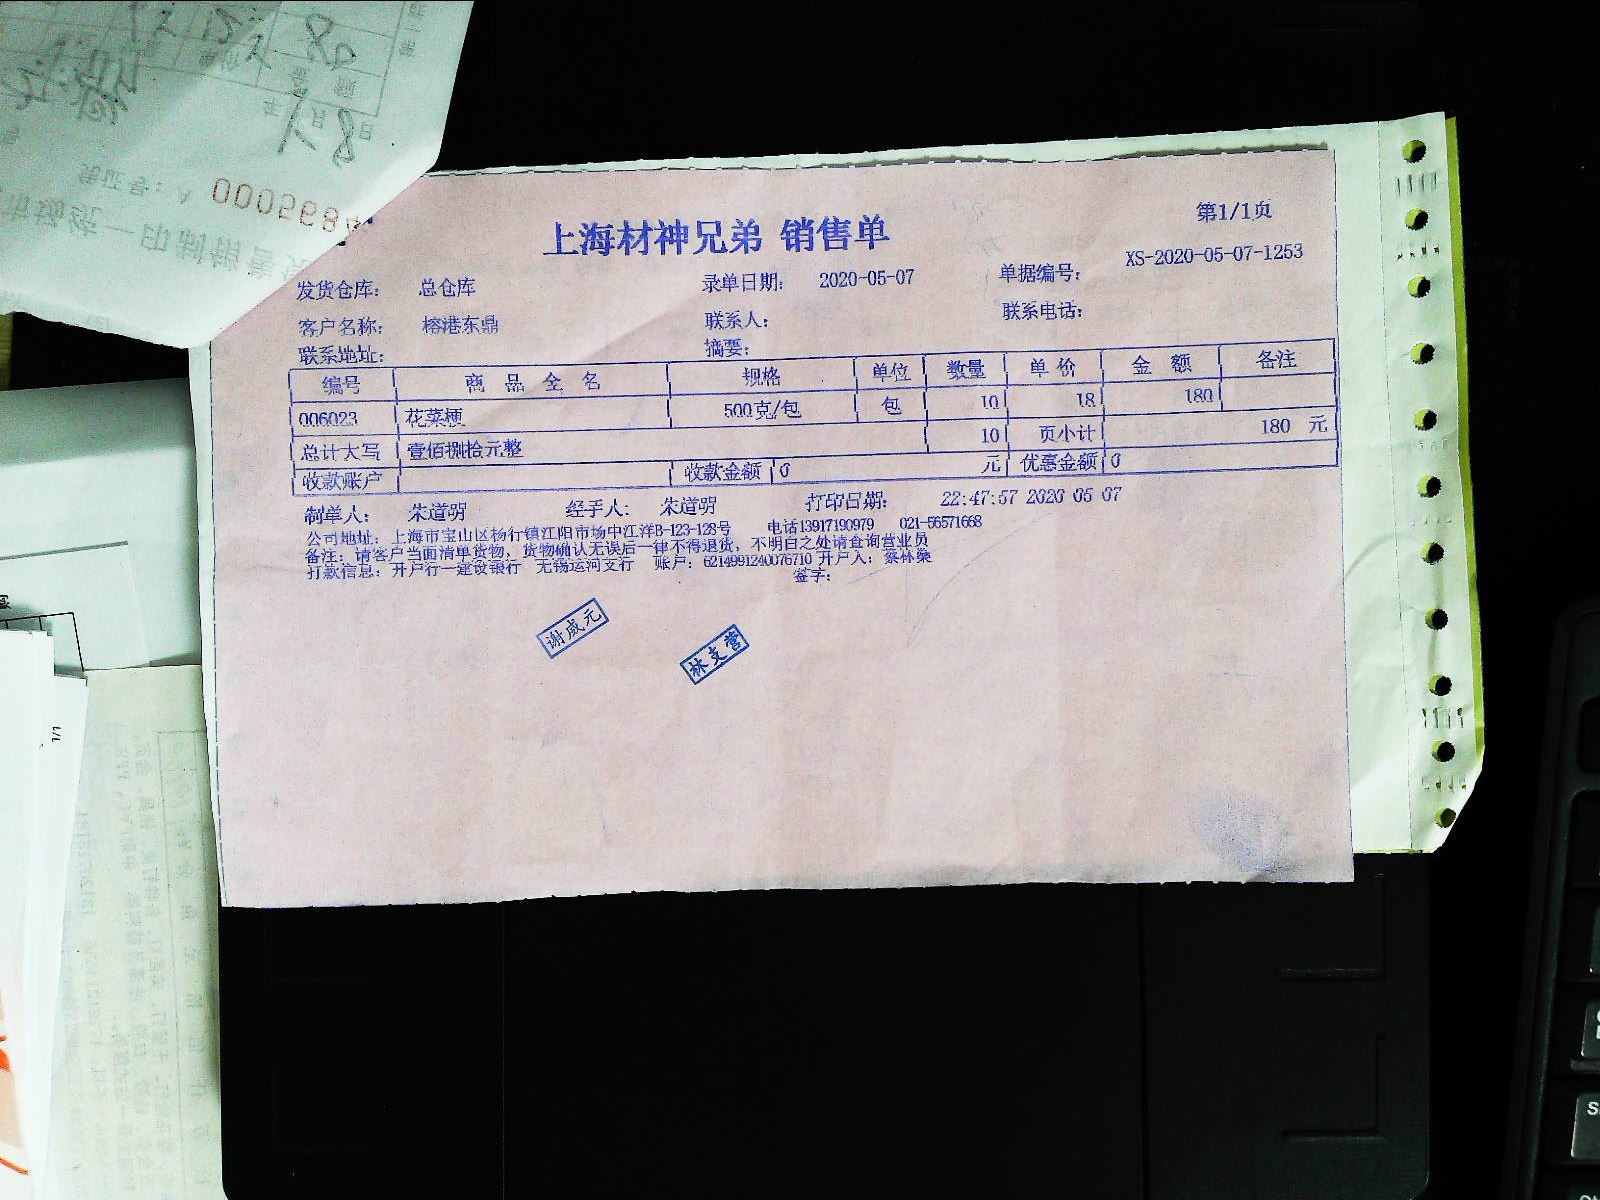 上海材神兄弟 销售单
第1/1页
发货仓库: 总仓库 录单日期: 2020-05-07 单据编号: XS-2020-05-07-1253
客户名称: 榕港东鼎 联系人: 联系电话:
联系地址: 摘要:
编号 商品全名 规格 单位 数量 单价 金额 备注
006023 花菜梗 500克/包 包 10 18 180
总计大写 壹佰捌拾元整 10 页小计 180 元
收款账户 收款金额 0 元 优惠金额 0
制单人: 朱道明 经手人: 朱道明 打印日期: 22:47:57 2020-05-07
公司地址: 上海市宝山区杨行镇江阳市场中江洋B-123-128号 电话13917190979 021-56571668
备注: 请客户当面清单货物, 货物确认无误后一律不得退货, 不明白之处请查询营业员
打款信息: 开户行—建设银行 无锡运河支行 账户: 6214991240076710 开户人: 蔡林燊
签字:
谢成元
林支营
年1月8日
凭证号: A 0005684
1/1